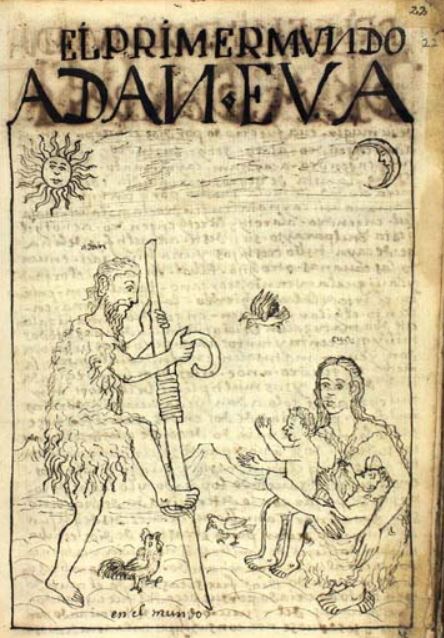 22
22
EL PRIMER MVNDO
ADAN · EVA
adan
eva
en el mundo